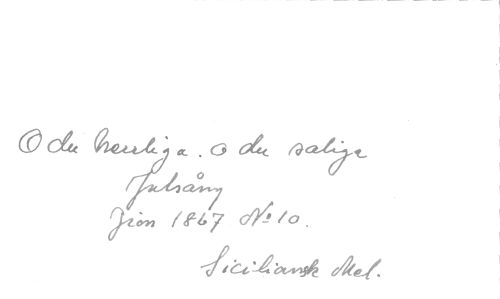 O du herrliga. o du saliga
Julsång
Zion 1867 No 10.
Siciliansk Mel.